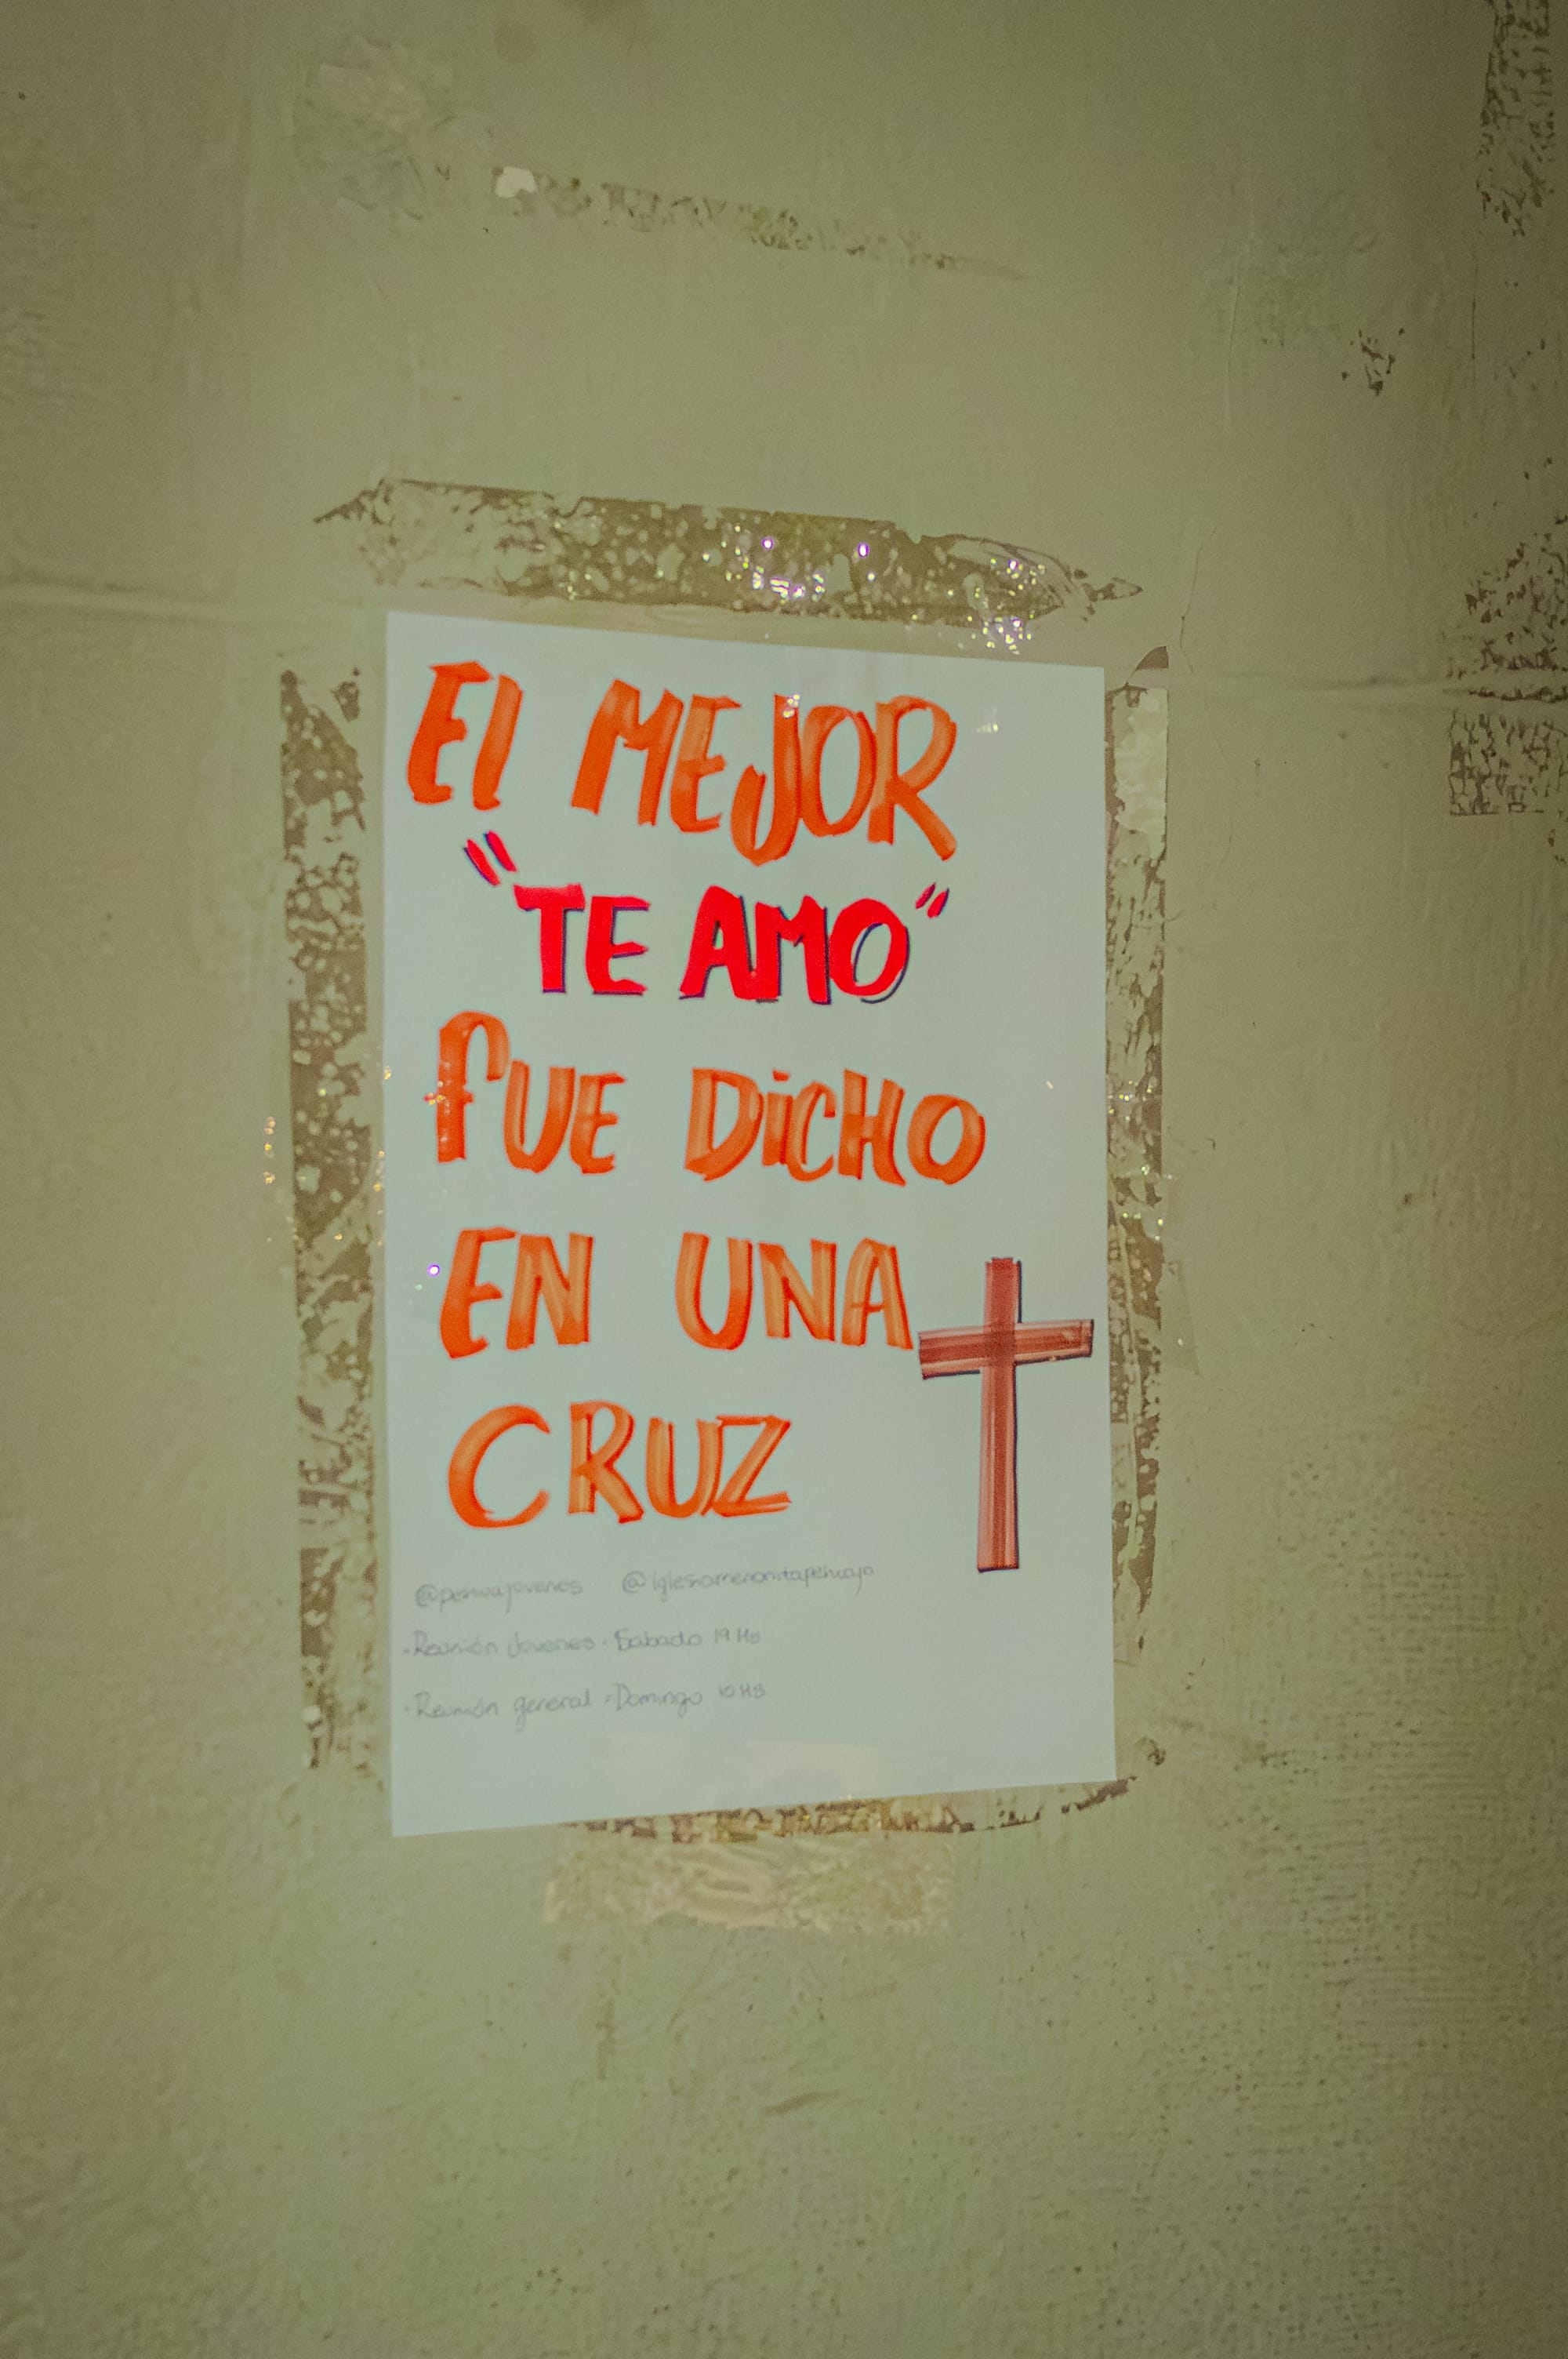 El MEJOR
"TE AMO"
fUE DiCHO
EN UNA
CRUZ
@iglesiamenonitapehuajo
-Reunión Jovenes - Sabado 19 Hs
-Reunión general - Domingo 10 HS